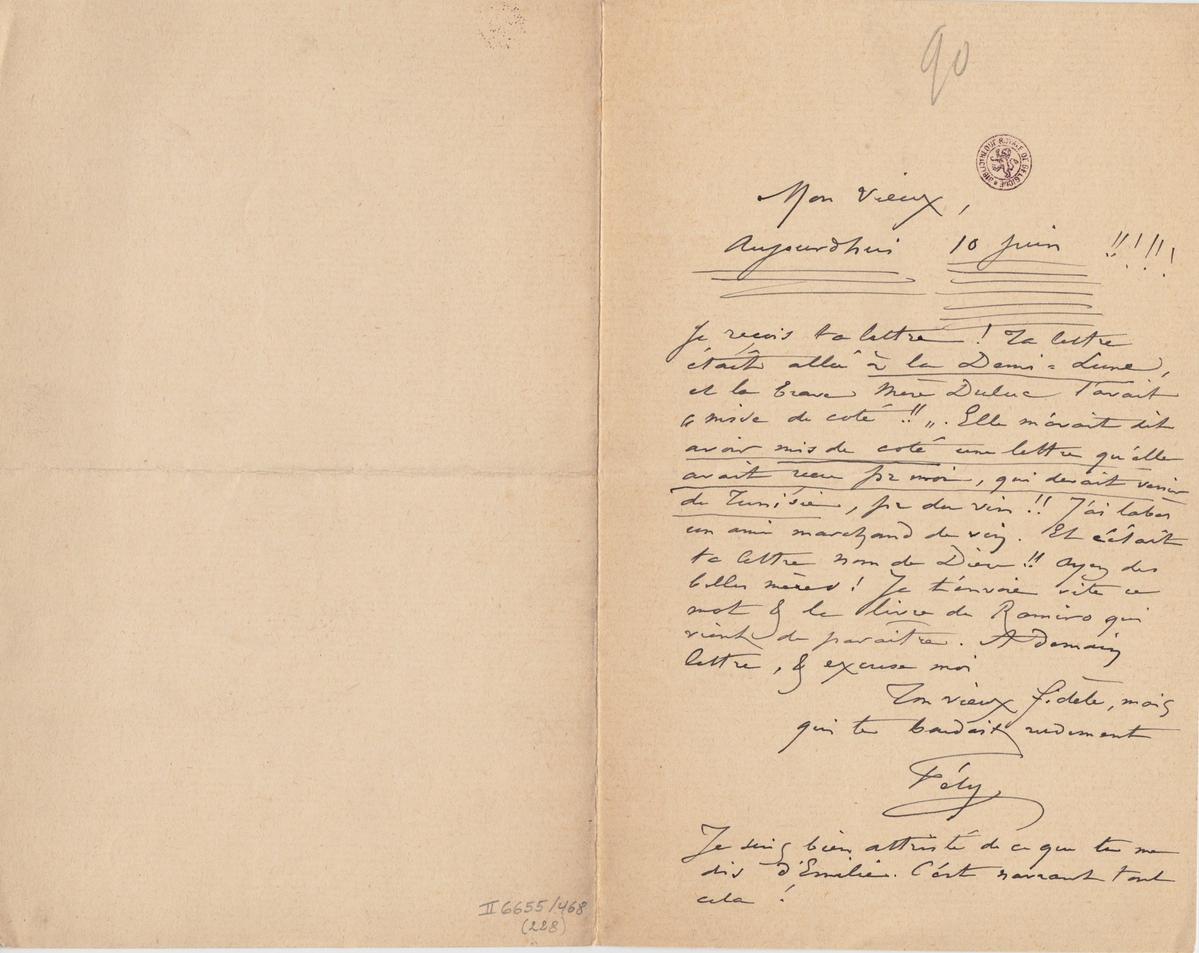 90
BIBLIOTHEQUE ROYALE DE BELGIQUE
Mon Vieux,
Aujourdhui 10 Juin !!!!!
Je reçois ta lettre ! Ta lettre
était allée à la Demi-Lune,
et la brave mère Duluc l'avait
« mise de coté !! ». Elle m'avait dit
avoir mis de coté une lettre qu'elle
avait reçu pr moi, qui devait venir
de Tunisie, pr du vin !! J'ai labas
un ami marchand de vin. Et c'était
ta lettre nom de Dieu !! ayez des
belles mères ! Je t'envoie vite ce
mot & le livre de Ramiro qui
vient de paraître. A demain
lettre, & excuse moi
Ton vieux fidèle, mais
qui te boudait rudement
Fély
Je suis bien attristé de ce que tu me
dis d'Emilie. C'est navrant tout
cela !
II 6655/468
(228)